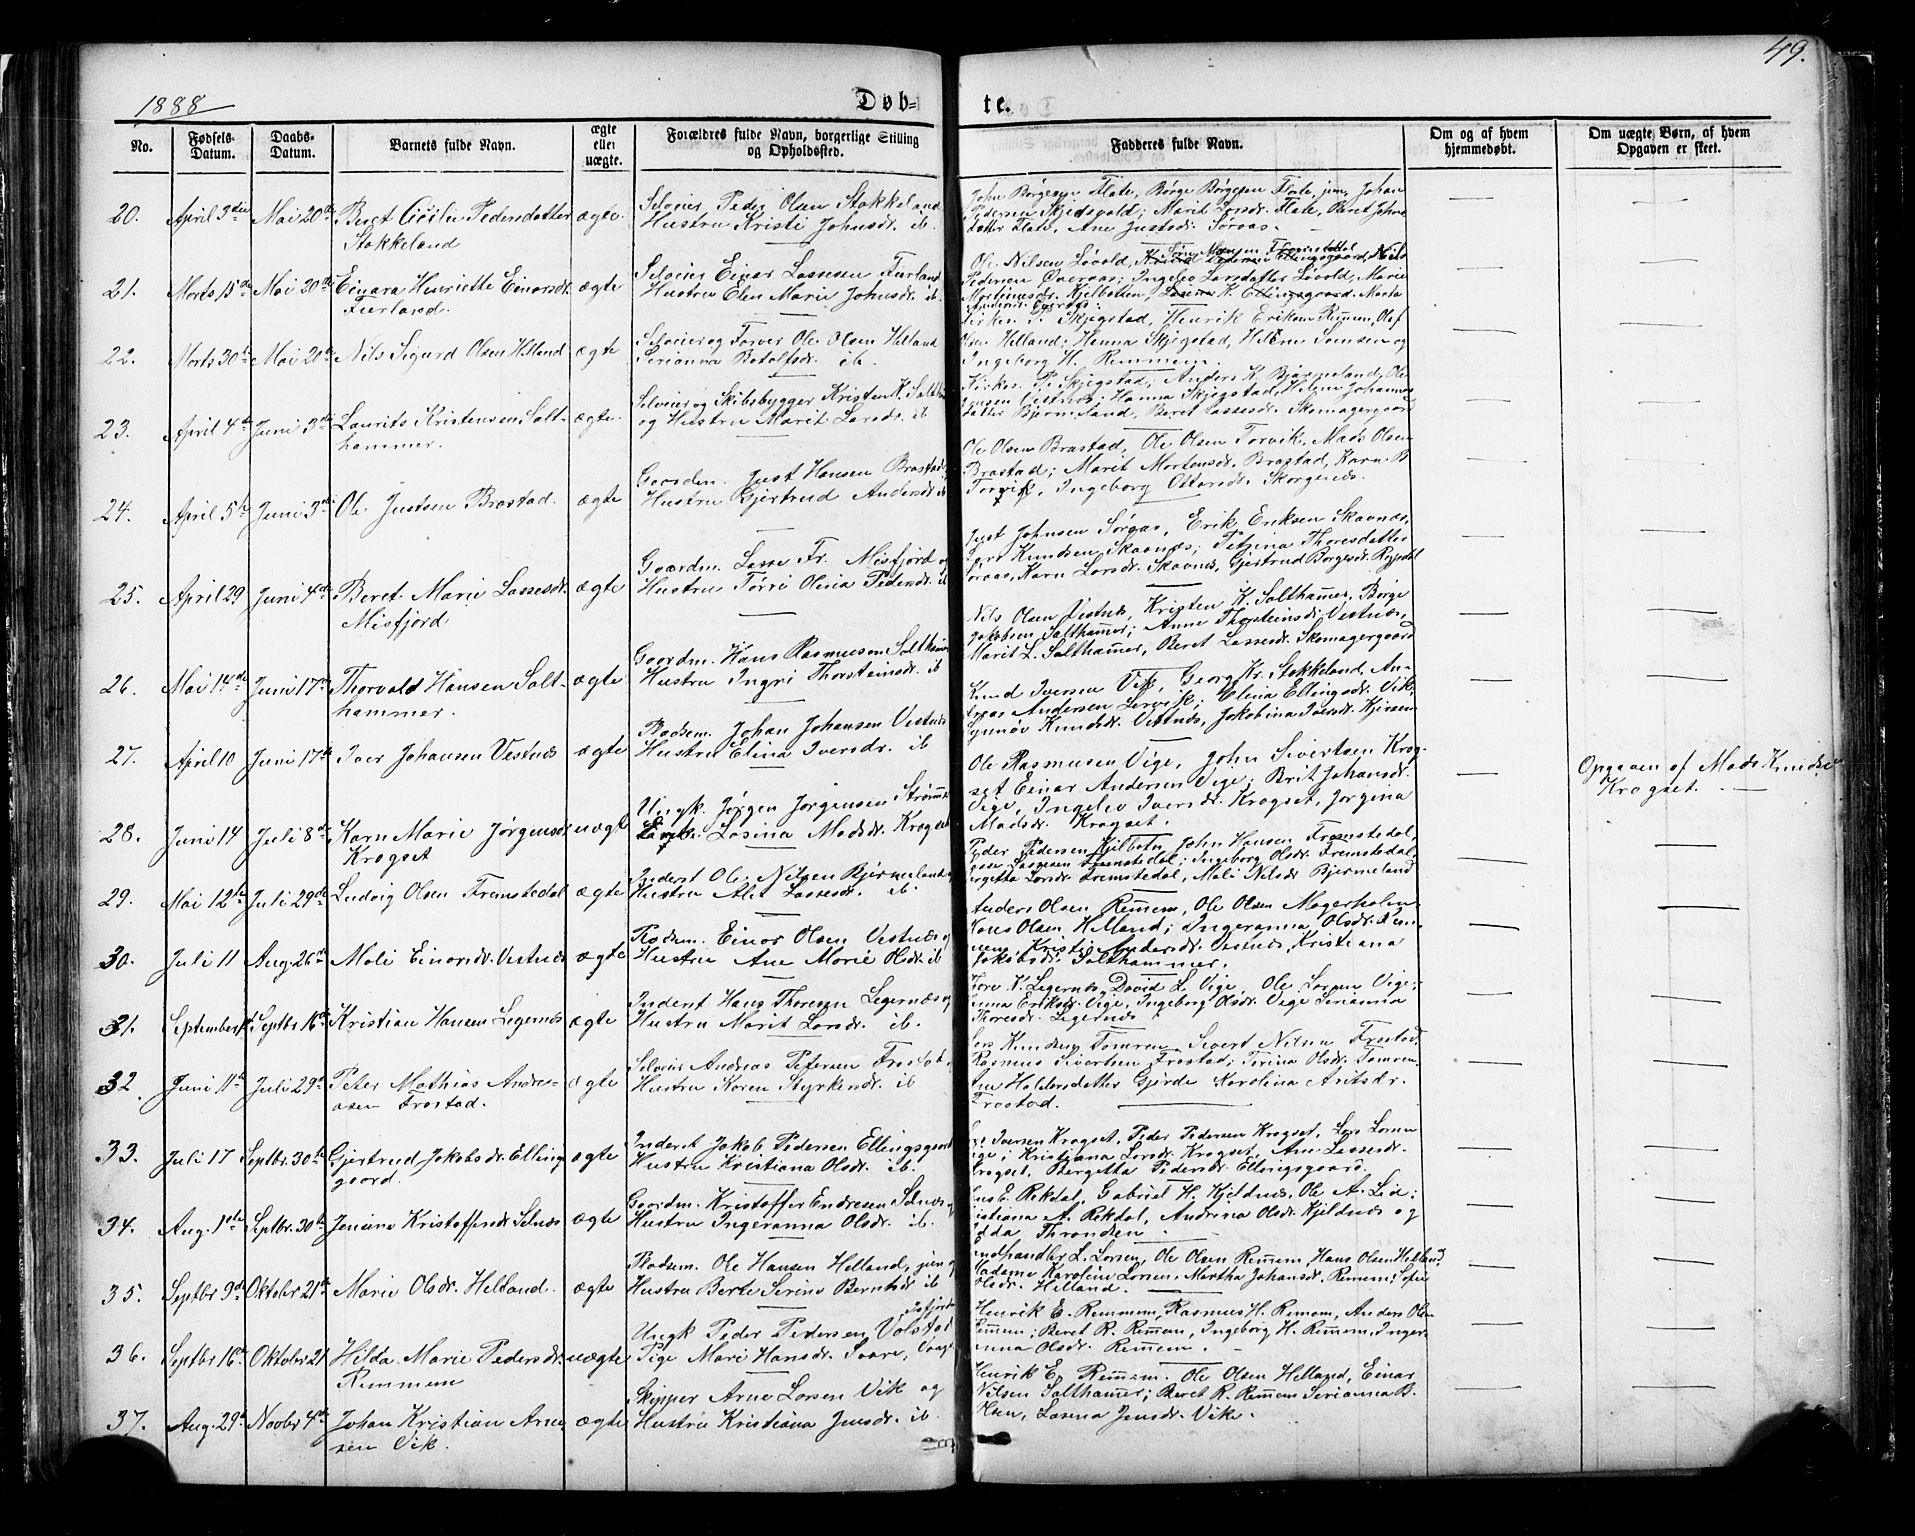 49.
1888
Døb-
te.
No.
Fødsels-Datum.
Daabs-Datum.
Barnets fulde Navn.
ægte eller uægte.
Forældres fulde Navn, borgerlige Stilling og Opholdssted.
Fadderes fulde Navn.
Om og af hvem hjemmedøbt.
Om uægte Børn, af hvem Opgaven er skeet.
20. April 3die Mai 20de Beret Cecilie Pedersdatter ægte. Selveier Peder Olsen Stokkeland
Stokkeland Hustru Kristi Johnsdr. ib.
John Børgesen Flate, Børge Børgesen Flate, jun., Johan
Pedersen Skjegstad; Marit Larsdr. Flate, Beret Johns
datter Flate, Ane Justsdr. Søraas.
21. Marts 15de Mai 20de Einara Henriette Einarsdr. ægte Selveier Einar Lassesen Furland
Furland. Hustru Elen Marie Johnsdr. ib.
Ole Nilsen Løvold, Nils
Pedersen Øveraas, Ingelev Larsdatter Løvold, Marie
Martinusdr. Kjelbotten, Lasina K. Ellingsgaard. Marta
22. Marts 30te Mai 20de Nils Sigurd Olsen Helland ægte Selveier og Farver Ole Olsen Helland
Serianna Botolfsdr. ib.
Kirkes. P. Skjegstad, Henrik Eriksen Remmen, Olaf
Olsen Helland; Hanna Skjegstad, Helene Jensen og
Ingeborg H. Remmem.
23. April 4de Juni 3die Laurits Kristensen Salt- ægte. Selveier og Skibsbygger Kristen K. Salth
hammer. og Hustru Marit Larsdr. ib
Kirkes. P. Skjegstad, Anders K. Bjermeland, Ole
Jensen Vestnes; Hanna Skjegstad, Helene Johannes
datter Bjermeland, Beret Lassesdr. Skomagergaard
24. April 5te Juni 3die Ole Justsen Brastad. ægte Gaardm. Just Hansen Brastad
Hustru Gjertrud Andersdr. ib
Ole Olsen Brastad, Ole Olsen Torvik, Mads Olsen
Brastad; Marit Mortensdr. Brastad, Karn B
Torvik, Ingeborg Ottersdr. Skorgenes.
25. April 29 Juni 4de Beret Marie Lassesdr. ægte Gaardm. Lasse Fr. Misfjord og
Misfjord Hustru Tørri Olina Pedersdr. ib
Just Johnsen Søraas, Erik Eriksen Skavnæs,
Lars Knudsen Skavnæs; Petrina Thoresdatter
Søraas, Karn Larsdr. Skavnes, Gjertrud Børgesdr. Rypdal
26. Mai 14de Juni 17de Thorvald Hansen Salt- ægte Gaardm. Hans Rasmusen Salthamer
hammer. Hustru Ingri Thorsteinsdr. ib
Nils Olsen Vestnes, Kristen K. Salthamer, Børge
Jakobsen Salthamer; Anne Thorsteinsdr. Vestnæs,
Marit L. Salthamer, Beret Lassesdr. Skomagergaard
27. April 10 Juni 17de Iver Johansen Vestnes ægte Pladsem. Johan Johansen Vestnes
Hustru Elina Iversdr. ib
Knud Iversen Vik, Georg Kr. Stokkeland, An-
dreas Andersen Lervik; Elena Ellingsdr. Vik,
Synnøv Knudsdr. Vestnes, Jakobina Iversdr.
28. Juni 14 Juli 8de Karn Marie Jørgensdr. uægte Ungk. Jørgen Jørgensen Strømme
Krogset Lasina Madsdr. Krogset
Ole Rasmusen Vige, John Sivertsen Krog-
set, Einar Andersen Vige; Brit Johansdr.
Vige, Ingelev Iversdr. Krogset, Jørgina
Madsdr. Krogset.
Opgaven af Mads Knudsen
Krogset.
29. Mai 12te Juli 29de Ludvig Olsen Fremstedal ægte Inderst Ole Nilsen Bjermeland og
Hustru Alet Lassesdr. ib.
Peder Pedersen Kjelbotn, John Hansen Fremstedal,
Lasse Lassesen Fremstedal; Ingeborg Olsdr. Fremstedal,
Bergetta Larsdr. Fremstedal, Mali Nilsdr Bjermeland
30. Juli 11 Aug. 26de Mali Einarsdr. Vestnes ægte Pladsem. Einar Olsen Vestnes og
Hustru Ane Marie Olsdr. ib
Anders Olsen Remem, Ole Olsen Magerholm
Hans Olsen Helland; Ingeranna Olsdr. Rem-
mem, Kristi Andersdr. Vestnes, Kristiana
Jakobsdr. Salthammer.
31. September Septbr 16de Kristian Hansen Legernes ægte Inderst Hans Thoresen Legernæs og
Hustru Marit Larsdr. ib.
Tore K. Legernes, David L. Vige, Ole Larsen Vige;
Eriksdr. Vige, Ingeborg Olsdr. Vige Serianna
Thoresdr. Legernes.
32 Juni 11te Juli 29de Peter Mathias Andre- ægte Selveier Andreas Petersen Frostad
asen Frostad. Hustru Karen Styrkersdr. ib
Lars Knudsen Tomren, Sivert Nilsen Frostad,
Rasmus Sivertsen Frostad; Torina Olsdr. Tomren,
Ane Haldorsdatter Gjerde Karolina Aritsdr.
Frostad.
33. Juli 17 Septbr. 30te Gjertrud Jakobsdr. Elling ægte Inderst Jakob Pedersen Ellingsgaard
gaard. Hustru Kristiana Olsdr. ib.
Iversen Krogset, Peder Pedersen Krogset, Lars Larsen
Vige; Kristiana Larsdr. Krogset, Ane Lassesdr.
Krogset, Bergetta Pedersdr. Ellingsgaard.
34. Aug. 1ste Septbr. 30te Jenine Kristoffersdr. Selnæs ægte Gaardm. Kristoffer Endresen Selnæs
Hustru Ingeranna Olsdr. ib.
E. Rekdal, Gabriel H. Kjeldnes, Ole A. Lie;
Kristiana A. Rekdal, Andrina Olsdr. Kjeldnes og
Throndsen
35. Septbr 9de Oktobr 21de Marie Olsdr. Helland. ægte Pladsem. Ole Hansen Helland, jun og
Hustru Berte Serine Berntsdr. ib
Landhandler L. Larsen, Ole Olsen Remem, Hans Olsen Helland,
Madame Karoline Larsen, Martha Johansdr. Remem, Sofie
Olsdr. Helland.
36. Septbr 16de Oktober 21 Hilda Marie Pedersdr. uægte Ungk Peder Pedersen Volstad
Remmem Pige Mari Hansdr. Saare,
Henrik E. Remmem, Rasmus H. Remem, Anders Olsen
Remem; Beret R. Remem, Ingeborg H. Remem, Inger
anna Olsdr. Remem.
37. Aug. 29de Novbr 4de Johan Kristian Arne- ægte Skipper Arne Larsen Vik og
sen Vik. Hustru Kristiana Jensdr. ib.
Henrik E. Remem. Ole Olsen Helland, Einar
Nilsen Salthamer; Beret R. Remem Serianna B.
Olsen, Lasena Jensdr. Vik.